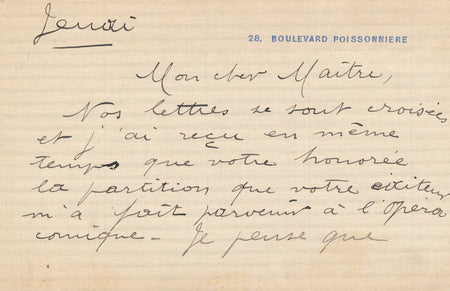 Jeudi
28. BOULEVARD POISSONNIERE
Mon cher Maître,
Nos lettres se sont croisées
et j'ai reçu en même
temps que votre honorée
la partition que votre éditeur
m'a fait parvenir à l'Opéra
comique - Je pense que